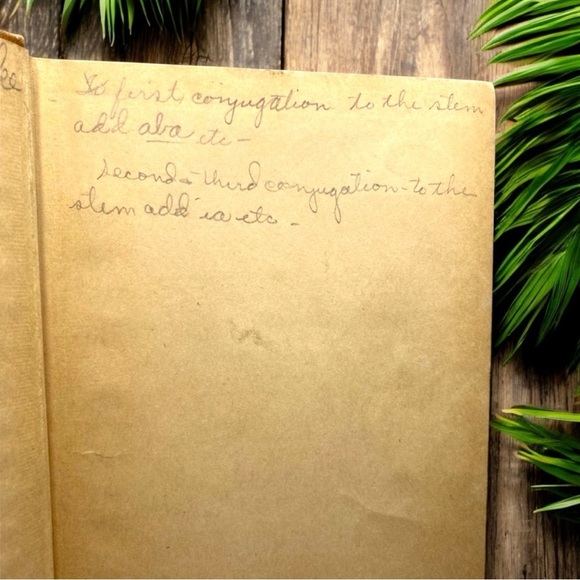 To first conjugation to the stem
add aba etc -
Second & third conjugation - to the
stem add ia etc -